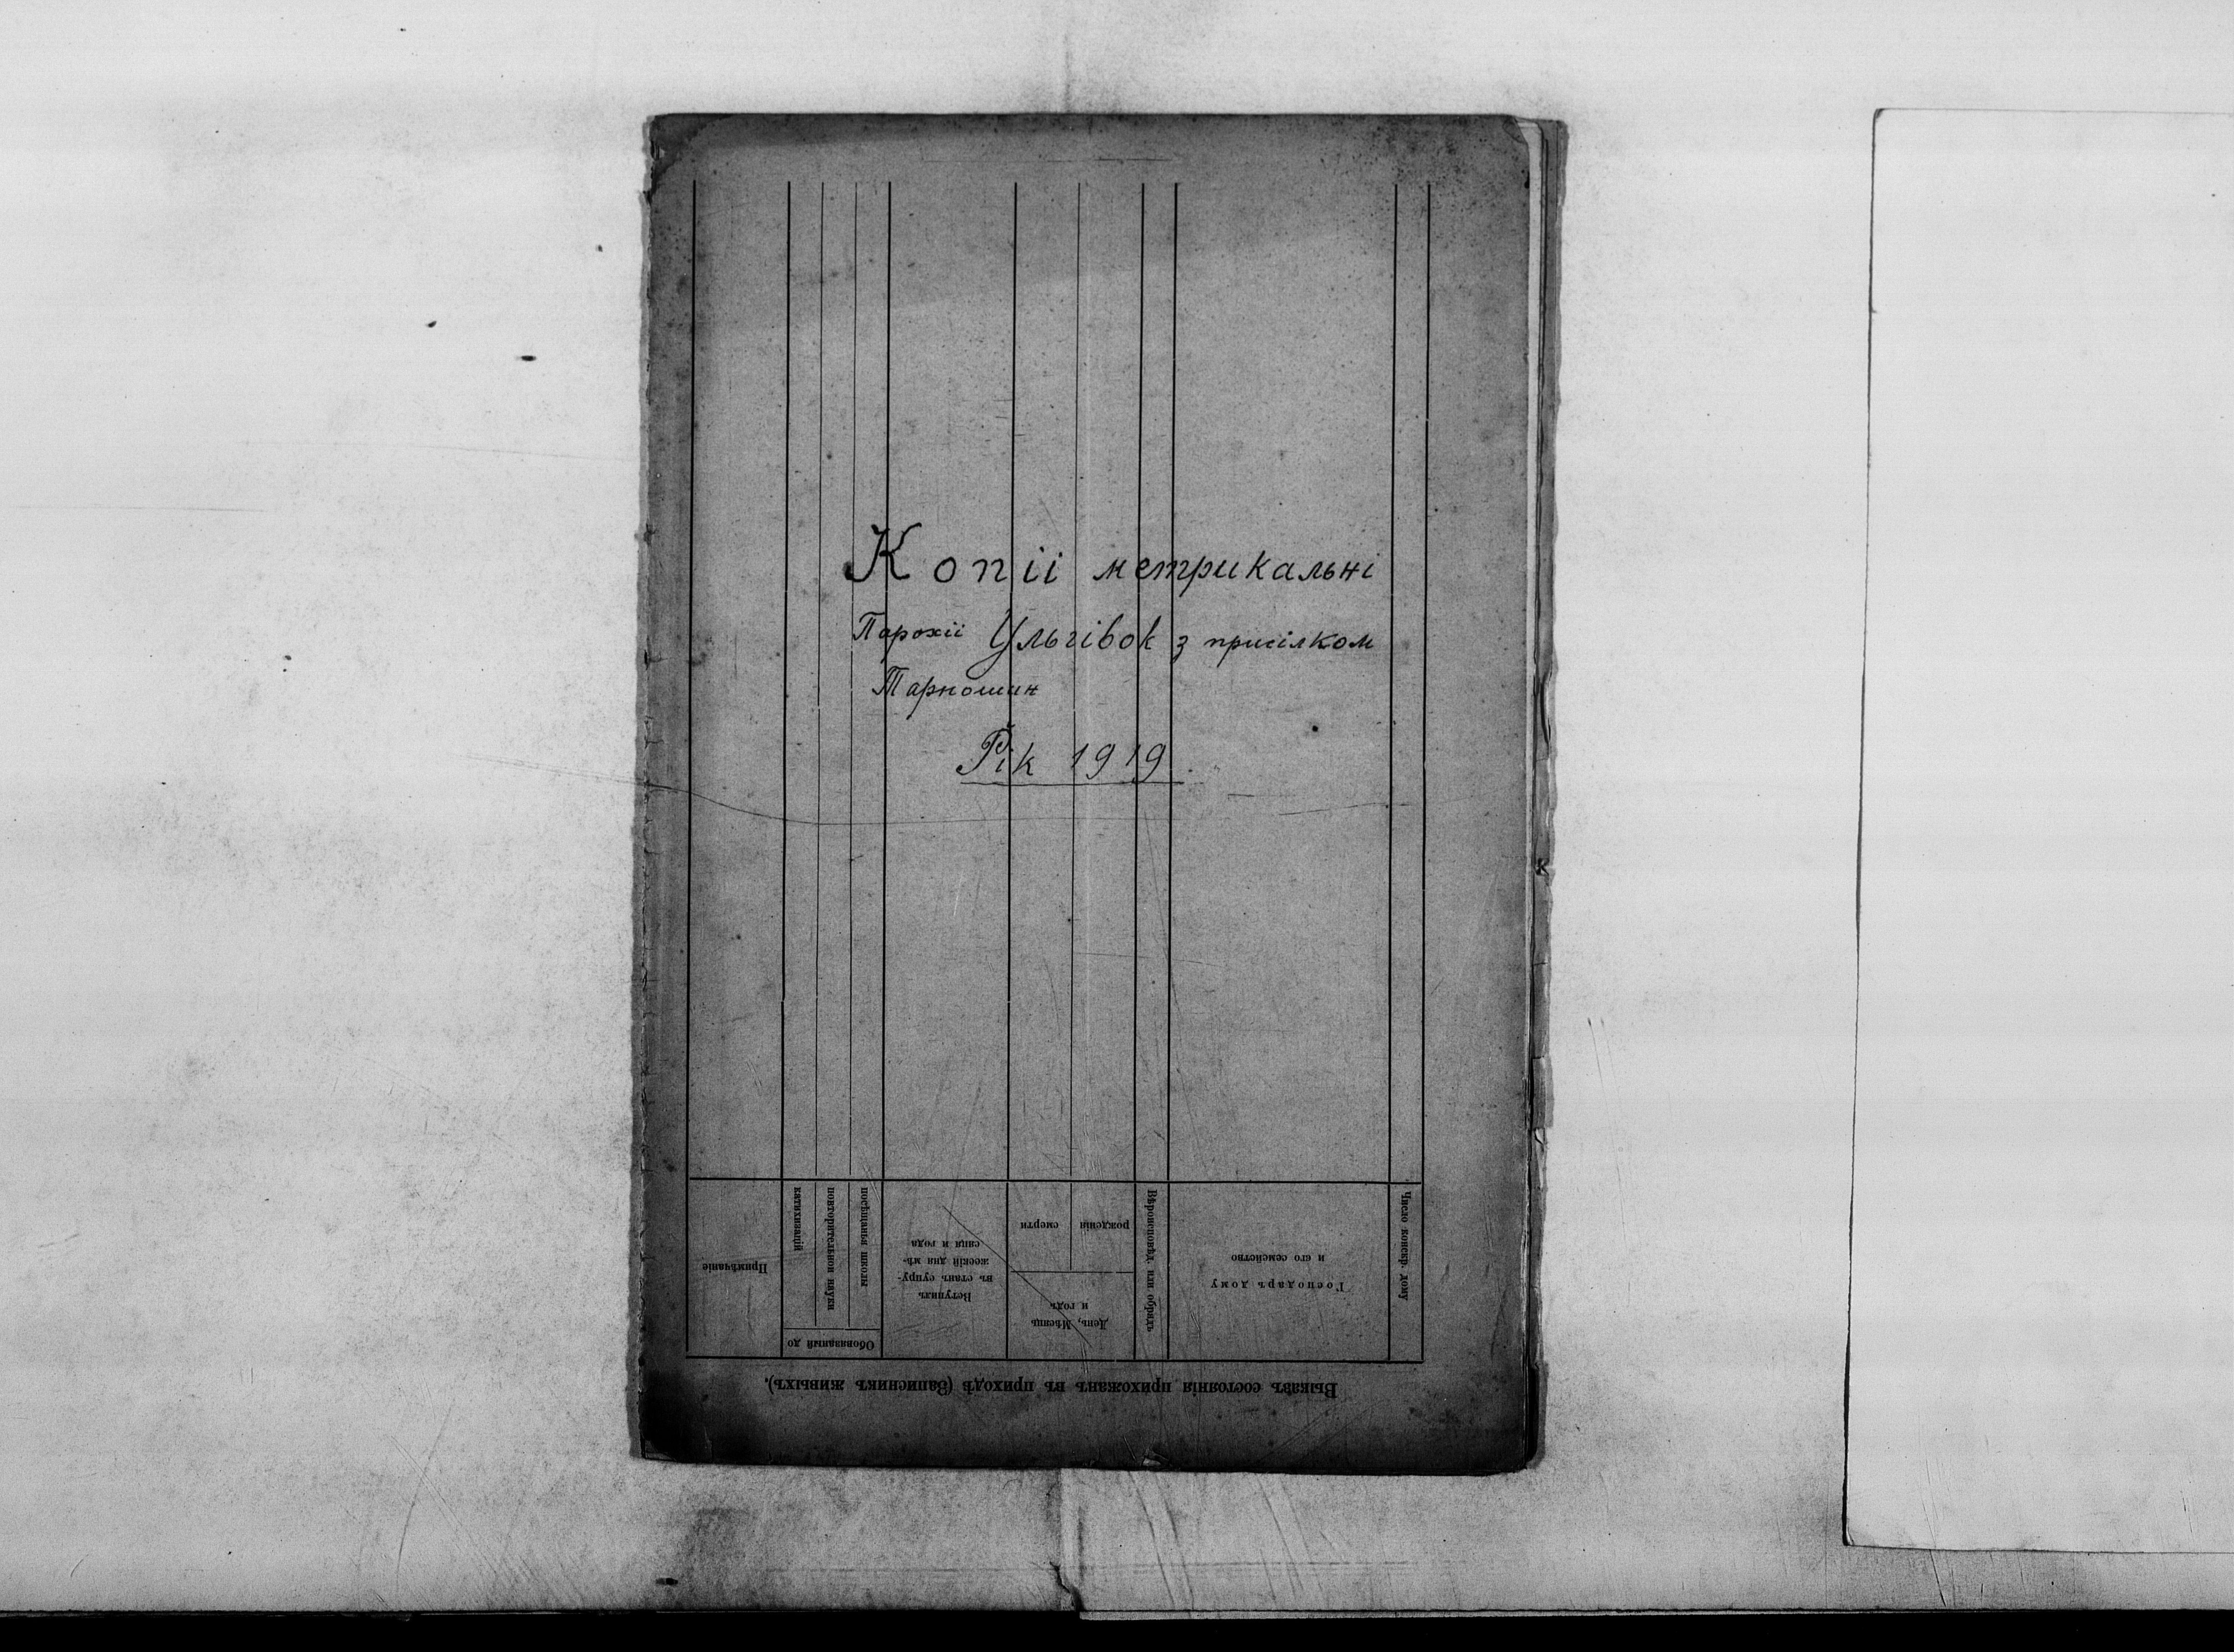 Копіі метрикальні
Парохіі Ульгівок з присілком
Тарношин
Рік 1919.
Выказъ состоянія прихожанъ въ приходѣ (Записникъ живыхъ).
Число конскр. дому
Господарь дому
и єго семейство
Вѣроисповѣд. или обрядъ
День, Мѣсяць
и годъ
рожденія
смерти
Вступилъ
въ станъ супру-
жескій дня мѣ-
сяця и года
Обовязаный до
посѣщанья школы
повторительнои науки
катихизацій
Примѣчаніе